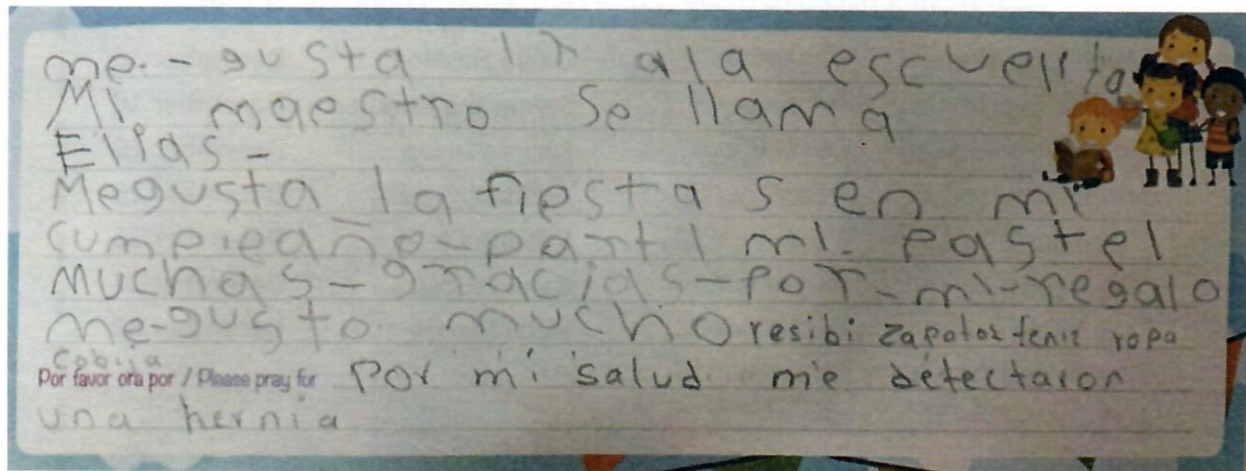 me.-gusta ir ala escuelita
Mi maestro se llama
Elias-
Megusta la fiesta s en mi
cumpleaño-parti mi. pastel
Muchas-gracias-por-mi-regalo
me-gusto mucho resibi zapatos tenis ropa
cobija
Por favor ora por / Please pray for por mi salud me detectaron
una hernia